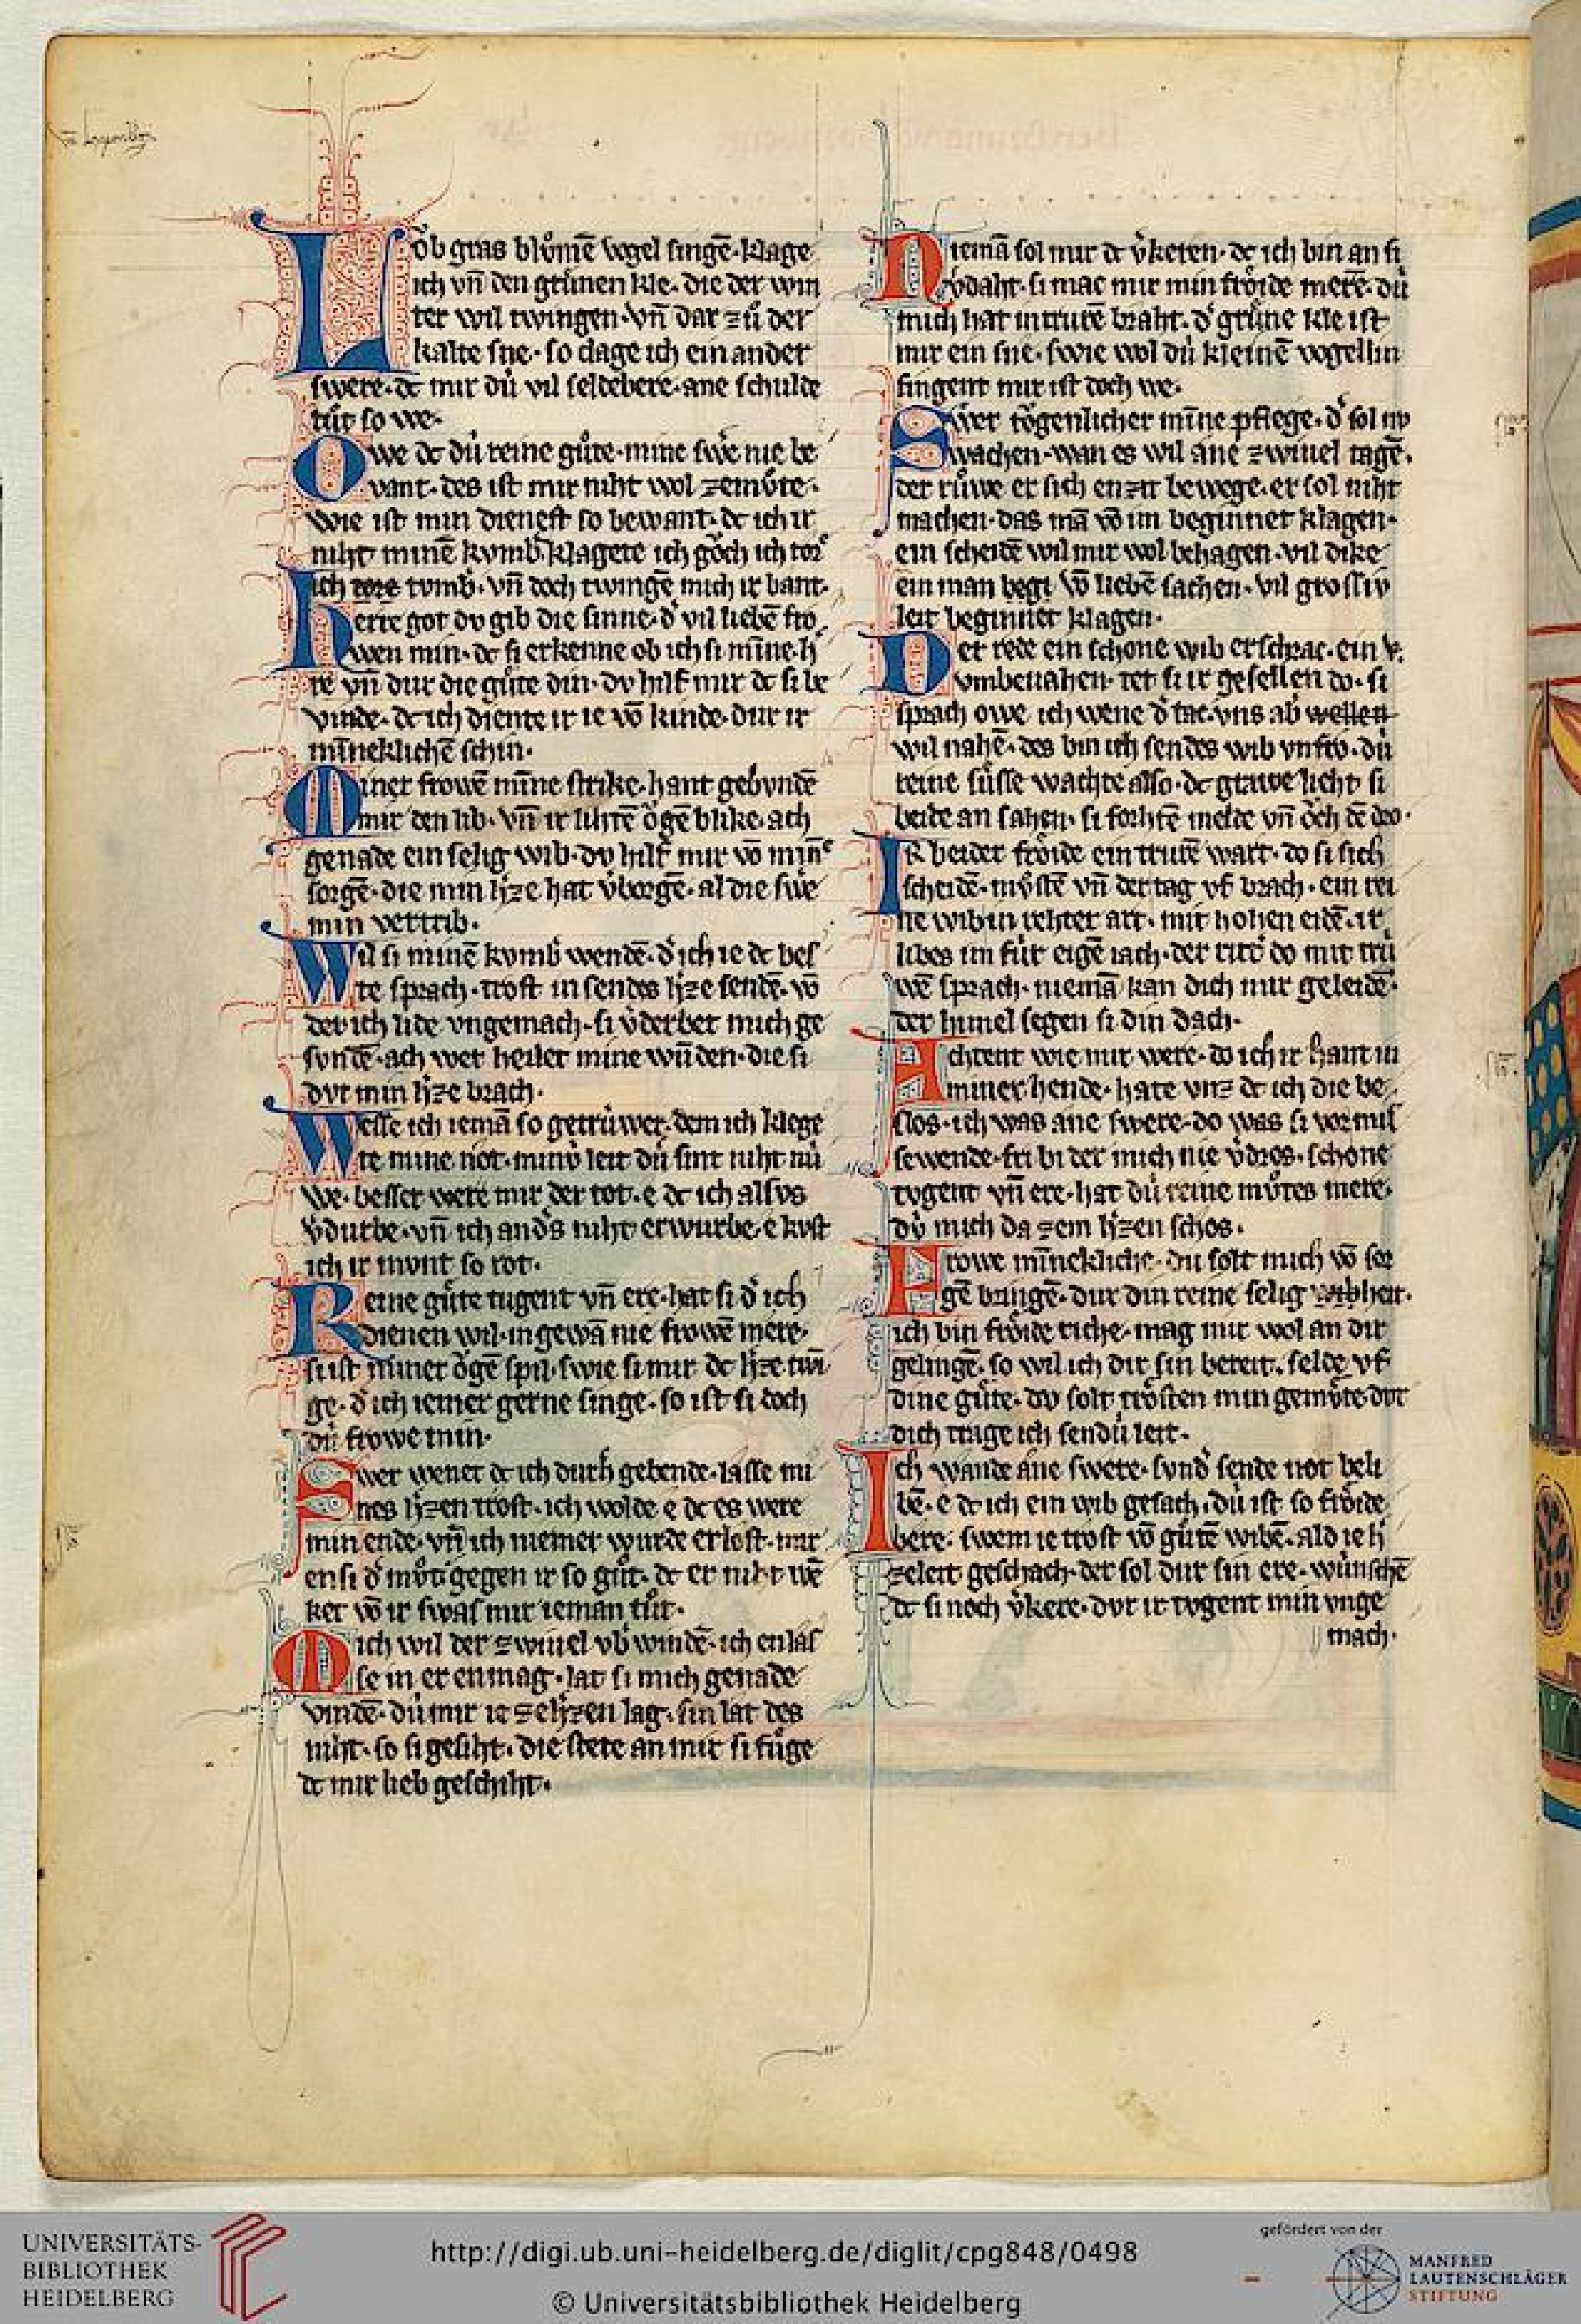 Lŏb gras blůmē vogel singē. klage
ich vn̄ den grůnen kle. die der win
ter wil twingen. vn̄ dar zů der
kalte sne. so clage ich ein ander
swere. dc mir dú vil seldebere. ane schulde
tůt so we.
Owe dc dú reine gůte. mine swe nie be
vant. des ist mir niht wol zemůte.
wie ist min dienest so bewant. dc ich ir
niht minē kvmb̾. klagete ich gŏch ich tor
ich tore tvmb̾. vn̄ doch twingē mich ir bant.
Herre got dv gib die sinne. d̾ vil liebē fro
wen min. dc si erkenne ob ich si mīne. h̾
re vn̄ dur die gůte din. dv hilf mir dc si be
vinde. dc ich diente ir ie vō kinde. dur ir
mīneklichē schin.
Miner frowē mīne strike. hant gebvndē
mir den lib. vn̄ ir lihtē ŏgē blike. ach
genade ein selig wib. dv hilf mir vō min̄
sorgē. die min h̾ze hat v̾borgē. al die swe
min vertrib.
Wil si minē kvmb̾ wendē. d̾ ich ie dc bes
te sprach. trost in sendes h̾ze sendē. vō
der ich lide vngemach. si v̾derbet mich ge
svndē. ach wer heilet mine wūden. die si
dvr min h̾ze brach.
Wesse ich iemā so getrúwer. dem ich klege
te mine not. minú leit dú sint niht nú
we. besser were mir der tot. e dc ich alsvs
v̾durbe. vn̄ ich anders niht erwurbe. e kvst
ich ir mvnt so rot.
Reine gůte tugent vn̄ ere. hat si d̾ ich
dienen wil. in gewā nie frowē mere.
si ist miner ŏgē spil. swie si mir dc h̾ze twī
ge. d̾ ich iemer gerne singe. so ist si doch
dú frowe min.
Swer wenet dc ich durh gebende. lasse mi
nes h̾zen trost. ich wolde e dc es were
min ende. vn̄ ich niemer wurde erlost. mir
en si d̾ můt gegen ir so gůt. dc er niht wē
ket vō ir swas mir ieman tůt.
Mich wil der zwiuel vb̾ windē. ich enlas
se in er enmag. lat si mich genade
vindē. dú mir ie ze h̾zen lag. sin lat des
niht. so si gesiht. die stete an mir si fůge
dc mir lieb geschiht.
Niemā sol mir dc v̾keren. dc ich bin an si
v̾daht. si mac mir min frŏide merē. dú
mich hat in trurē braht. d̾ grůne kle ist
mir ein sne. swie wol dú kleinē vogellin
singent mir ist doch we.
Swer tŏgenlicher mīne pflege. d̾ sol nv
wachen. wan es wil ane zwiuel tagē.
der růwe er sich enzit bewege. er sol niht
machen. das mā vō im beginnet klagen.
ein scheidē wil mir wol behagen. vil dike
ein man beget vō liebē sachen. vil grossiv
leit beginnet klagen.
Der rede ein schone wib erschrac. ein v̾
vmbeuahen. tet si ir gesellen do. si
sprach owe ich wene d̾ tac. vns ab̾ wellen
wil nahē. des bin ich sendes wib vnfro. dú
reine sůsse wachte also. dc grawe lieht si
beide an sahen. si forhtē melde vn̄ ŏch dē dro.
Ir beider frŏide ein trurē wart. do si sich
scheidē. můstē vn̄ der tag vf brach. ein rei
ne wib in rehter art. mit hohen eidē. ir
libes im fúr eigē iach. der rit̾ do mit trú
wē sprach. niemā kan dich mir geleidē.
der himel segen si din dach.
Achtent wie mir were. do ich ir hant in
miner hende. hate vnz dc ich die be
slos. ich was ane swere. do was si vor mis
sewende. fri bi der mich nie v̾dros. schone
tvgent vn̄ ere. hat dú reine můtes mere.
dú mich da zem h̾zen schos.
Frowe mīnekliche. du solt mich vō sor
gē bringē. dur din reine selig wibheit.
ich bin frŏide riche. mag mir wol an dir
gelingē. so wil ich dir sin bereit. selde vf
dine gůte. dv solt trŏsten min gemůte. dvr
dich trage ich sendú leit.
Ich wande ane swere. svnd̾ sende not beli
bē. e dc ich ein wib gesach. dú ist so frŏide
bere. swem ie trost vō gůtē wibē. ald ie h̾
zeleit geschach. der sol dur sin ere. wúnschē
dc si noch v̾kere. dvr ir tvgent min vnge
mach.
UNIVERSITÄTS-
BIBLIOTHEK
HEIDELBERG
http://digi.ub.uni-heidelberg.de/diglit/cpg848/0498
© Universitätsbibliothek Heidelberg
gefördert von der
MANFRED
LAUTENSCHLÄGER
STIFTUNG